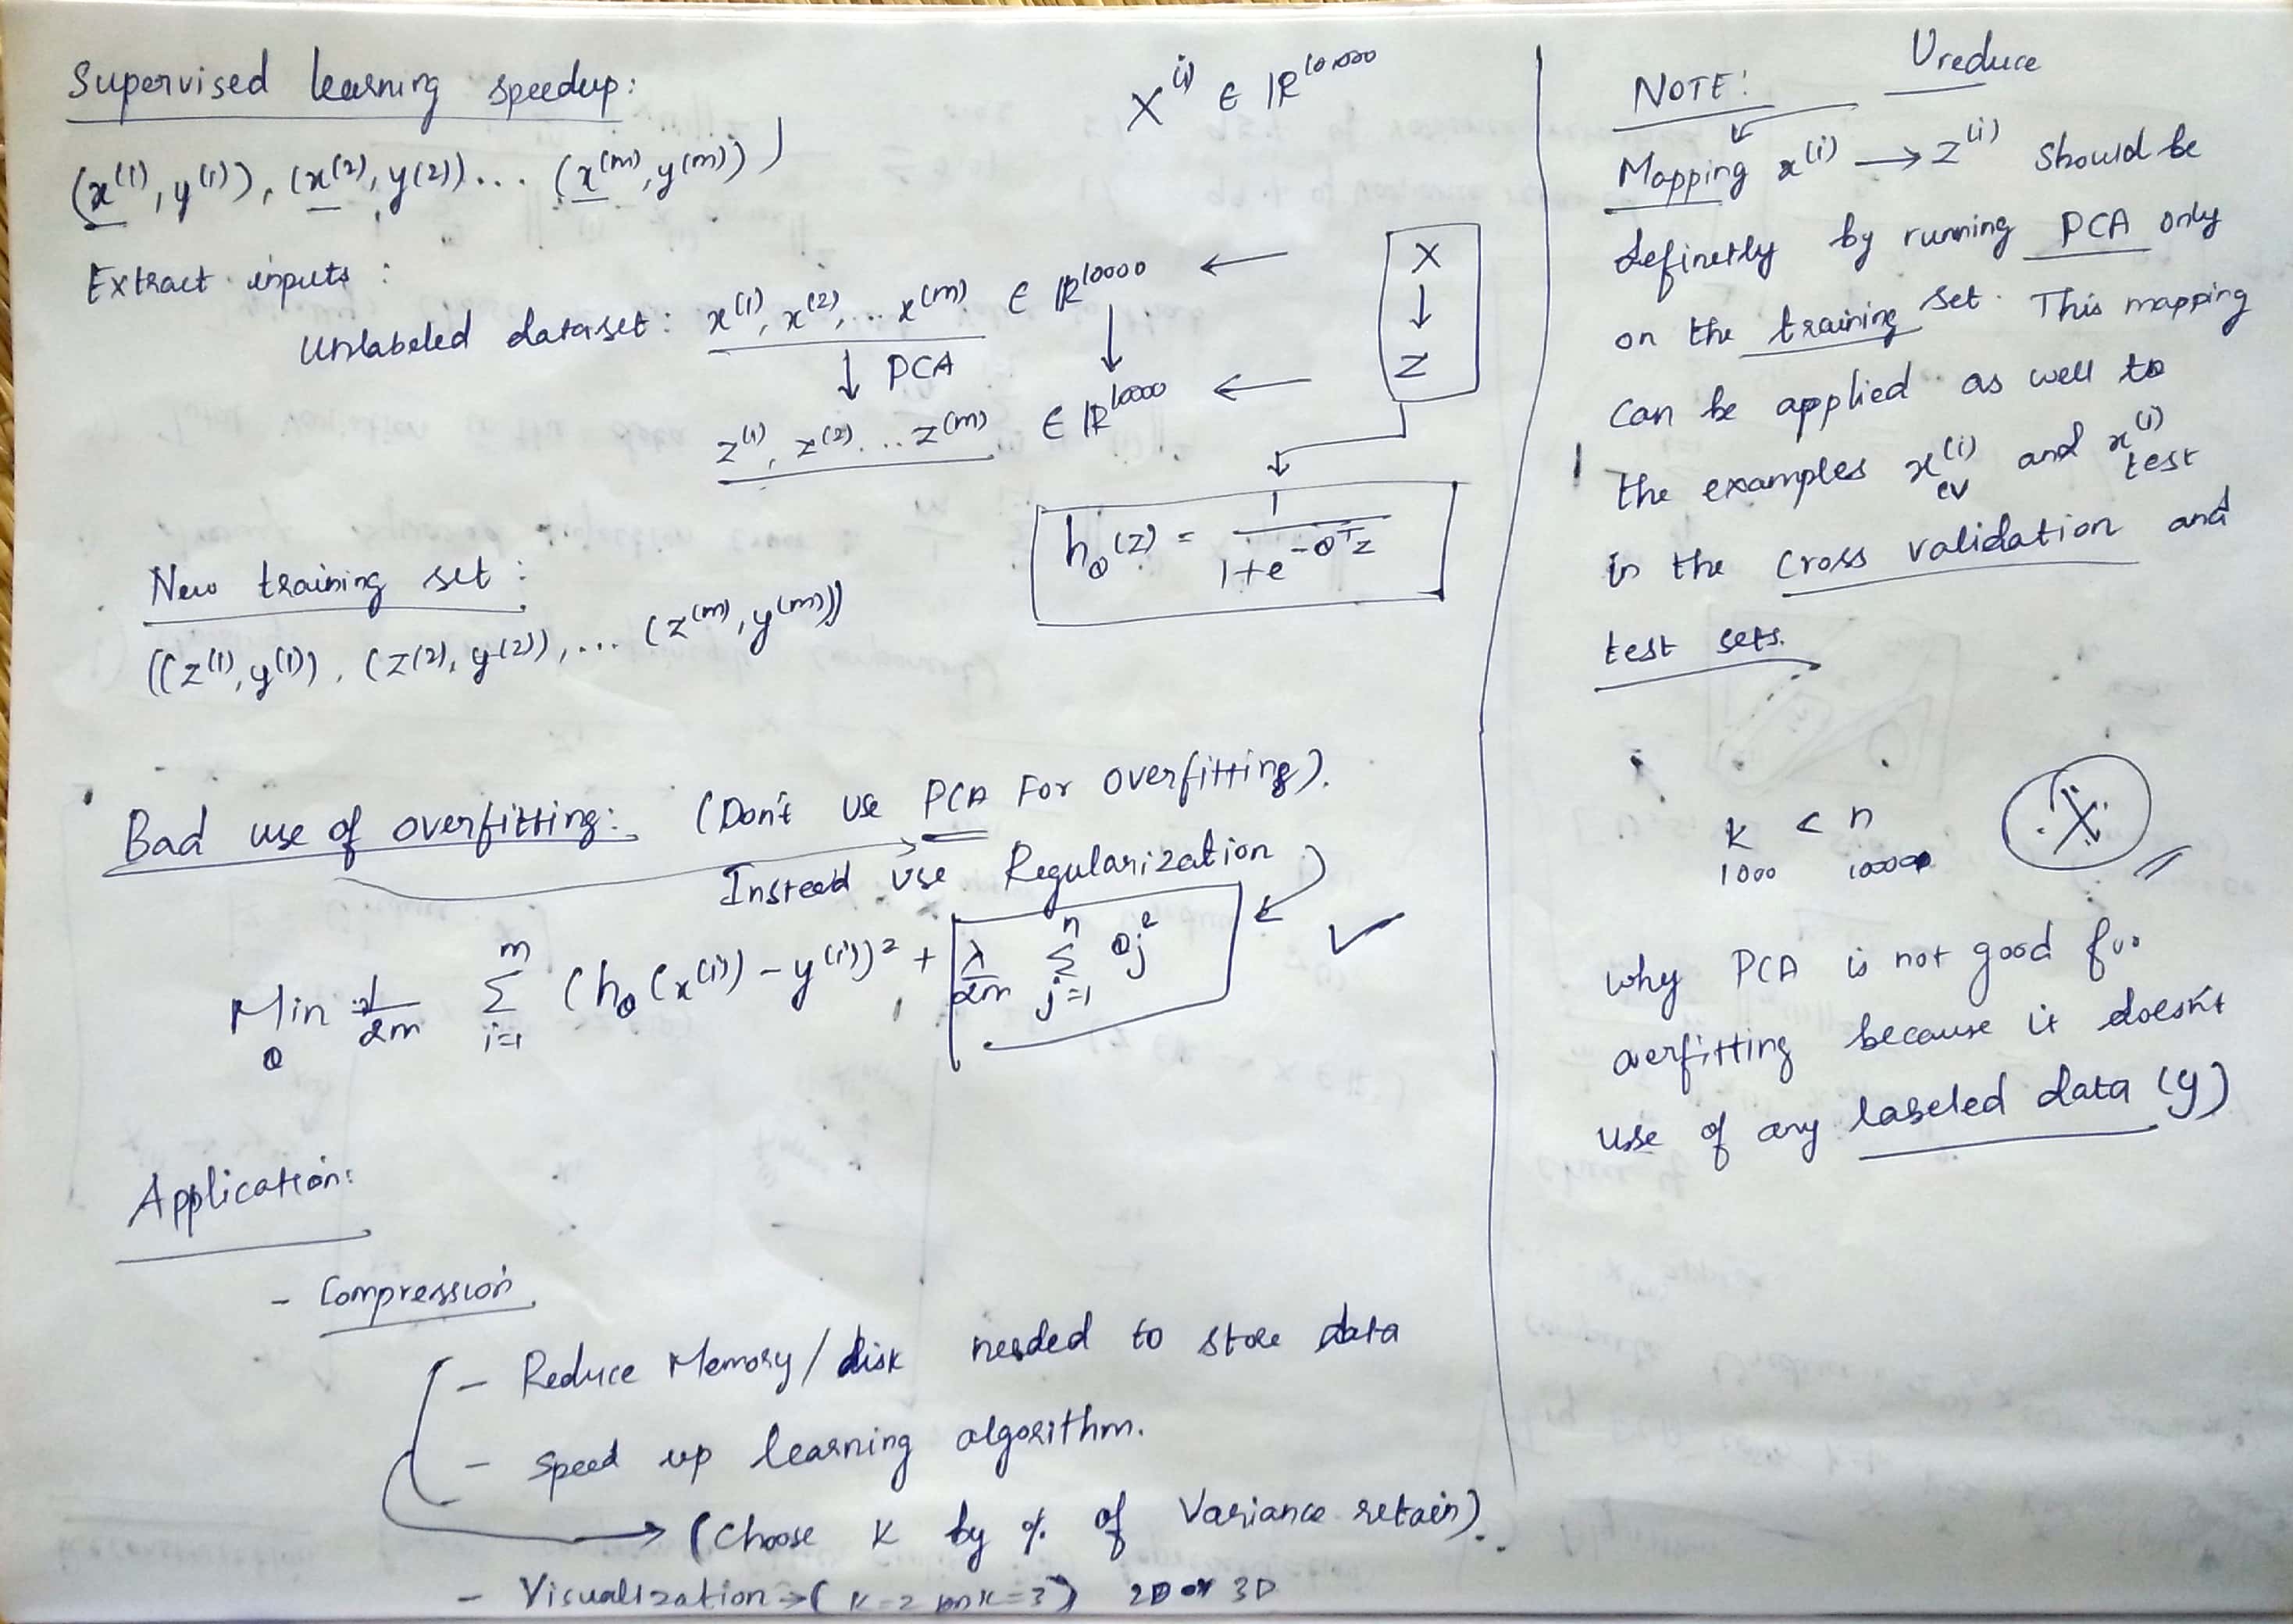 Supervised learning speedup:
X⁽ⁱ⁾ ∈ ℝ¹⁰'⁰⁰⁰
(x⁽¹⁾, y⁽¹⁾), (x⁽²⁾, y(2)) ... (x⁽ᵐ⁾, y⁽ᵐ⁾))
Extract inputs :
Unlabeled dataset: x⁽¹⁾, x⁽²⁾, ... x⁽ᵐ⁾ ∈ ℝ¹⁰⁰⁰⁰ ←
↓ PCA ↓
z⁽¹⁾, z⁽²⁾ ... z⁽ᵐ⁾ ∈ ℝ¹⁰⁰⁰ ←
X
↓
Z
h_θ(z) = 1 / (1+e^(-θᵀz))
New training set :
((z⁽¹⁾, y⁽¹⁾), (z⁽²⁾, y⁽²⁾), ... (z⁽ᵐ⁾, y⁽ᵐ⁾))
Bad use of overfitting: (Don't use PCA For overfitting).
Instead use Regularization
Min_θ 1/2m Σ_{i=1}^{m} (h_θ(x⁽ⁱ⁾) - y⁽ⁱ⁾)² + λ/2m Σ_{j=1}^{n} θj² ✓
Application:
- Compression
- Reduce Memory/disk needed to store data
- Speed up learning algorithm.
→ (Choose K by % of Variance retain).
- Visualization → ( K=2 K=3) 2D or 3D
NOTE: Ureduce
Mapping x⁽ⁱ⁾ → z⁽ⁱ⁾ should be
definetly by running PCA only
on the training set. This mapping
can be applied as well to
the examples x⁽ⁱ⁾cv and x⁽ⁱ⁾test
in the cross validation and
test sets.
k < n X
1000 10000
why PCA is not good for
overfitting because it doesn't
use of any labeled data (y)